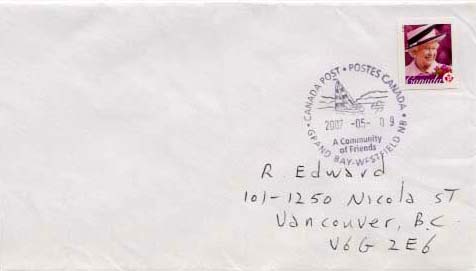 Canada
P
CANADA POST • POSTES CANADA
2007 -05- 09
A Community
of Friends
GRAND BAY-WESTFIELD NB
R. Edward
101-1250 Nicola ST
Vancouver, B.C.
V6G 2E6